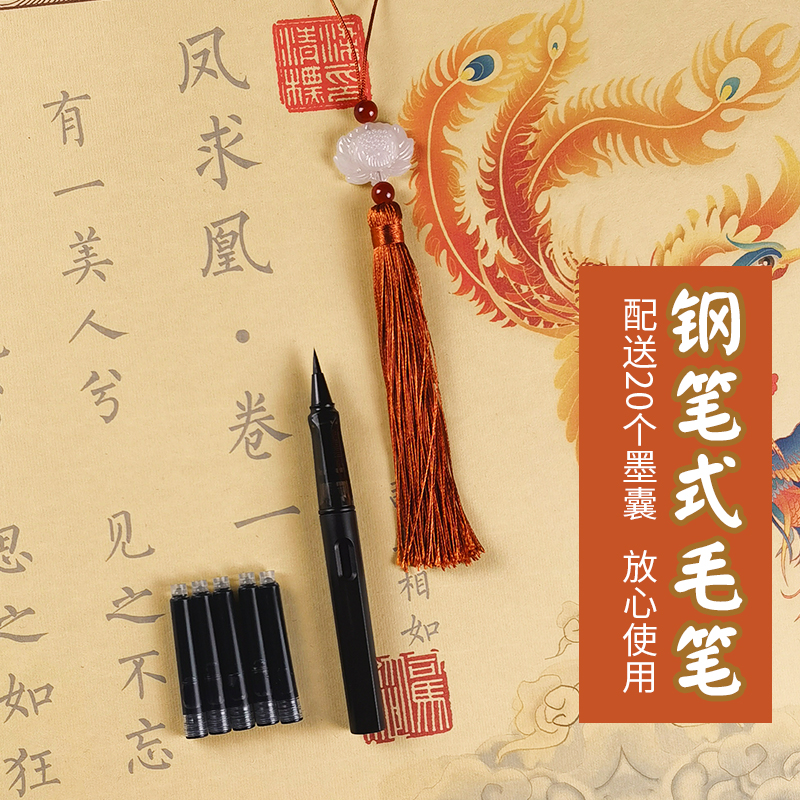 钢笔式毛笔
配送20个墨囊 放心使用
相如
凤求凰·卷一
有一美人兮
见之不忘
思之如狂